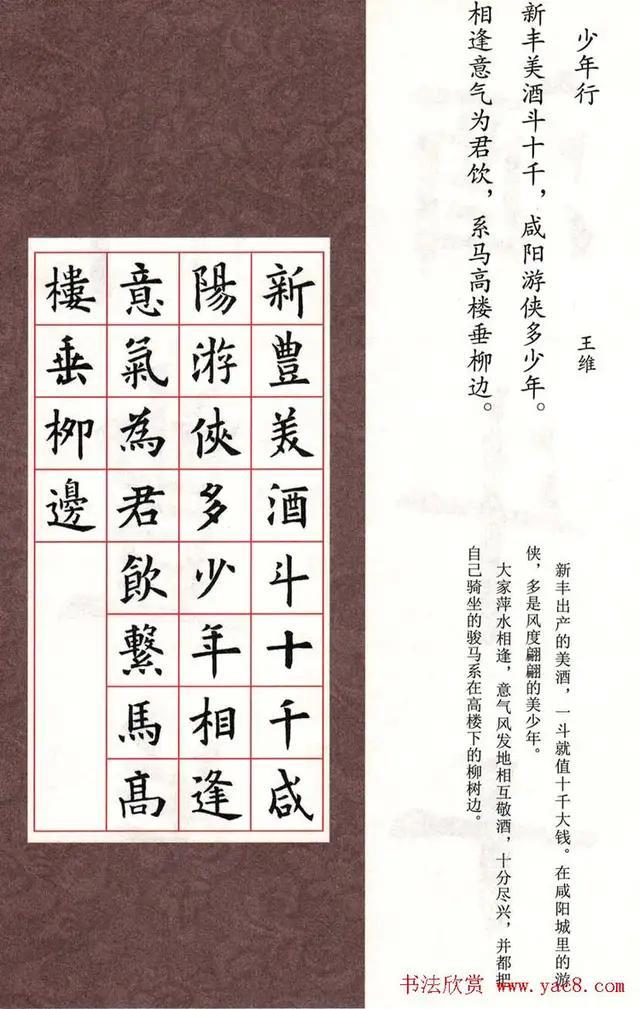 少年行 王维
新丰美酒斗十千，咸阳游侠多少年。
相逢意气为君饮，系马高楼垂柳边。
新丰出产的美酒，一斗就值十千大钱。在咸阳城里的游
侠，多是风度翩翩的美少年。
大家萍水相逢，意气风发地相互敬酒，十分尽兴，并都把
自己骑坐的骏马系在高楼下的柳树边。
新豐美酒斗十千咸
陽游俠多少年相逢
意氣為君飲繫馬高
樓垂柳邊
书法欣赏 www.yac8.com